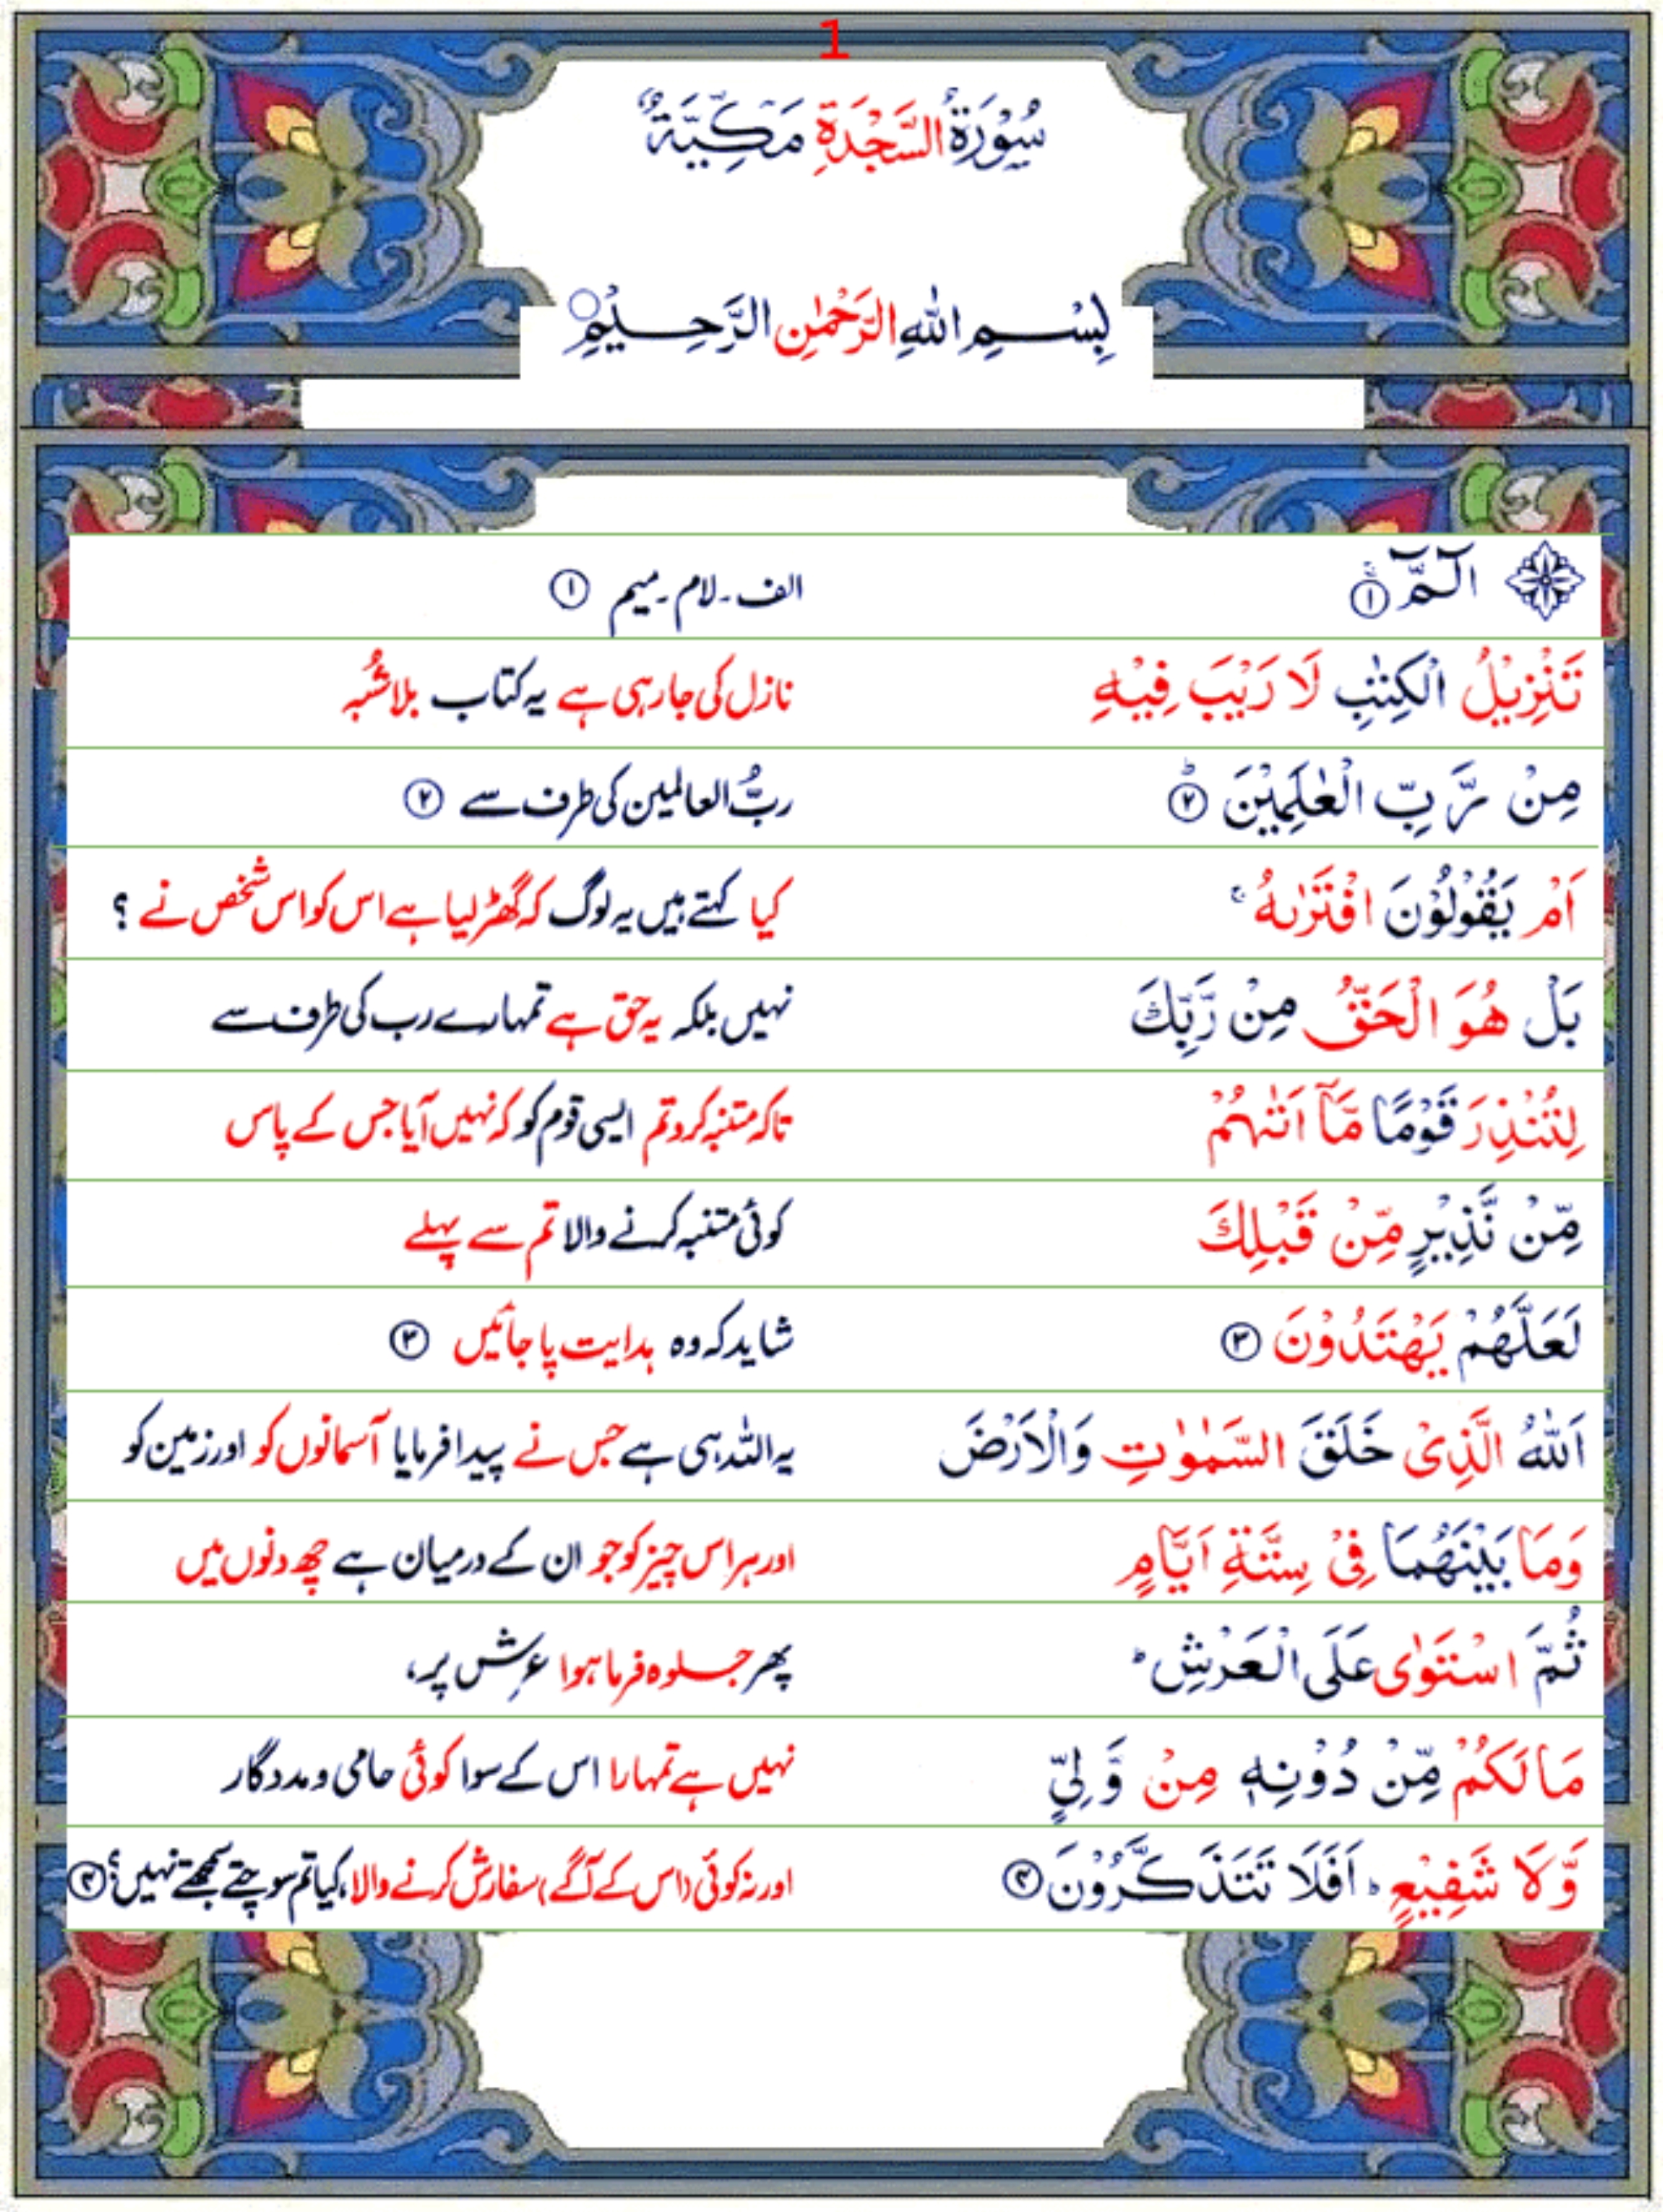 1
سُوْرَةُ السَّجْدَةِ مَكِّيَّةٌ
بِسْمِ اللّٰهِ الرَّحْمٰنِ الرَّحِيْمِ
الٓمّٓ ۚ ۱ الف۔لام۔میم ۱
تَنْزِيْلُ الْكِتٰبِ لَا رَيْبَ فِيْهِ نازل کی جارہی ہے یہ کتاب بلاشُبہ
مِنْ رَّبِّ الْعٰلَمِيْنَ ؕ ۲ ربُّ العالمین کی طرف سے ۲
اَمْ يَقُوْلُوْنَ افْتَرٰىهُ ۚ کیا کہتے ہیں یہ لوگ کہ گھڑ لیا ہے اس کو اس شخص نے ؟
بَلْ هُوَ الْحَقُّ مِنْ رَّبِّكَ نہیں بلکہ یہ حق ہے تمہارے رب کی طرف سے
لِتُنْذِرَ قَوْمًا مَّاۤ اَتٰىهُمْ تاکہ متنبہ کرو تم ایسی قوم کو کہ نہیں آیا جس کے پاس
مِّنْ نَّذِيْرٍ مِّنْ قَبْلِكَ کوئی متنبہ کرنے والا تم سے پہلے
لَعَلَّهُمْ يَهْتَدُوْنَ ۳ شاید کہ وہ ہدایت پا جائیں ۳
اَللّٰهُ الَّذِىْ خَلَقَ السَّمٰوٰتِ وَالْاَرْضَ یہ اللہ ہی ہے جس نے پیدا فرمایا آسمانوں کو اور زمین کو
وَمَا بَيْنَهُمَا فِىْ سِتَّةِ اَيَّامٍ اور ہر اس چیز کو جو ان کے درمیان ہے چھ دنوں میں
ثُمَّ اسْتَوٰى عَلَى الْعَرْشِ ؕ پھر جلوہ فرما ہوا عرش پر،
مَا لَكُمْ مِّنْ دُوْنِهٖ مِنْ وَّلِىٍّ نہیں ہے تمہارا اس کے سوا کوئی حامی و مددگار
وَّلَا شَفِيْعٍ ؕ اَفَلَا تَتَذَكَّرُوْنَ ۴ اور نہ کوئی (اس کے آگے) سفارش کرنے والا، کیا تم سوچتے سمجھتے نہیں؟ ۴